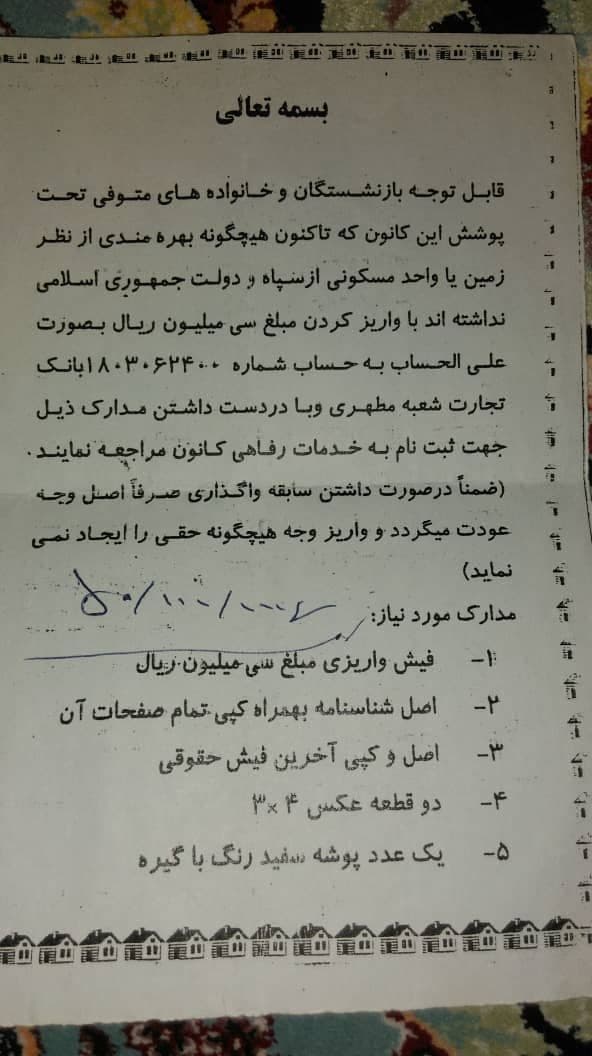 بسمه تعالی
قابل توجه بازنشستگان و خانواده های متوفی تحت
پوشش این کانون که تاکنون هیچگونه بهره مندی از نظر
زمین یا واحد مسکونی ازسپاه و دولت جمهوری اسلامی
نداشته اند با واریز کردن مبلغ سی میلیون ریال بصورت
علی الحساب به حساب شماره ۱۸۰۳۰۶۲۴۰۰بانک
تجارت شعبه مطهری وبا دردست داشتن مدارک ذیل
جهت ثبت نام به خدمات رفاهی کانون مراجعه نمایند.
(ضمناً درصورت داشتن سابقه واگذاری صرفاً اصل وجه
عودت میگردد و واریز وجه هیچگونه حقی را ایجاد نمی
نماید)
مدارک مورد نیاز:
۱- فیش واریزی مبلغ سی میلیون ریال
۲- اصل شناسنامه بهمراه کپی تمام صفحات آن
۳- اصل و کپی آخرین فیش حقوقی
۴- دو قطعه عکس ۴×۳
۵- یک عدد پوشه سفید رنگ با گیره